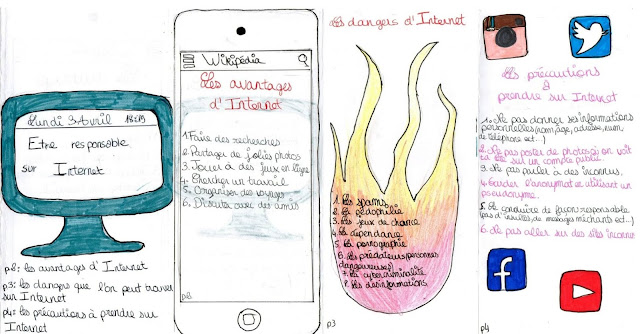 Lundi 3 Avril
Etre responsable
sur Internet
p2: les avantages d'Internet
p3: les dangers que l'on peut trouver
sur Internet
p4: les précautions à prendre sur
Internet
Wikipédia
Les avantages
d'Internet
1. Faire des recherches
2. Partager de jolies photos
3. Jouer à des jeux en ligne
4. Chercher un travail
5. Organiser des voyages
6. Discuter avec des amis
p2
Les dangers d'Internet
1. Les spams
2. La pédophilie
3. Les jeux de chance
4. La dépendance
5. La pornographie
6. Les prédateurs (personnes
dangereuses)
7. La cybercriminalité
8. Les désinformations
p3
Les précautions
à
prendre sur Internet
1. Ne pas donner ses informations
personnelles (nom, âge, adresse, num
de téléphone ect...)
2. Ne pas poster de photos où on voit
sur un compte public
3. Ne pas parler à des inconnus.
4. Garder l'anonymat en utilisant un
pseudonyme.
5. Se conduire de façon responsable
(pas d'insultes de messages méchants ect..)
6. Ne pas aller sur des sites inconnus
p4